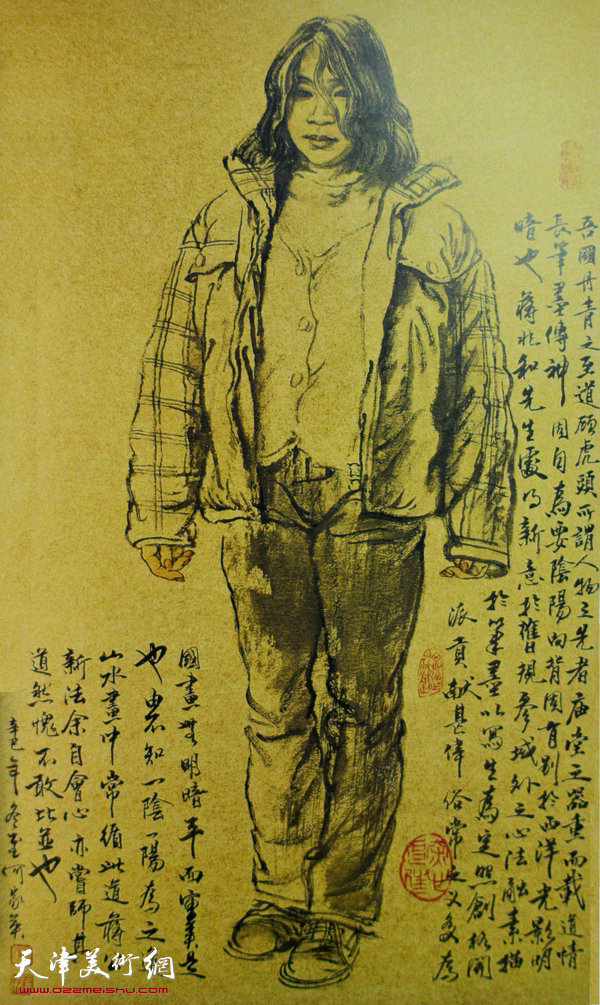 吾國丹青之至道顧虎頭所謂人物之先者廟堂之器重而載道情
長筆墨傳神固自為要陰陽向背固有別於西洋光影明
暗也蔣兆和先生處以新意於舊規參域外之心法融素描
於筆墨以寫生為定照創格開
派貢獻甚偉俗常之義多為
國畫無明暗平而
也君知一陰一陽為之
山水畫中常循此道蔣
新法余自會心亦嘗師其
道然愧不敢比並也
辛巳年冬至何家英
天津美術網
www.022meishu.com